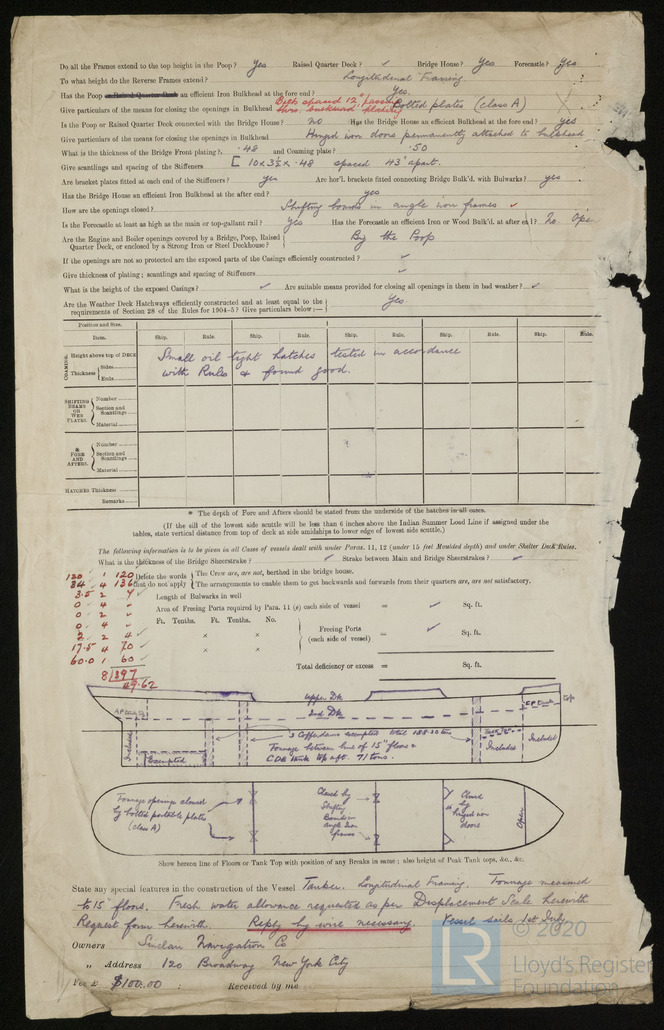 Do all the Frames extend to the top height in the Poop? Yes Raised Quarter Deck? ✓ Bridge House? Yes Forecastle? Yes
To what height do the Reverse Frames extend? Longitudinal Framing
Has the Poop or Raised Quarter Deck an efficient Iron Bulkhead at the fore end? Yes.
Give particulars of the means for closing the openings in Bulkhead Bolted plates (class A)
Bolts spaced 12" passing thro. bulkhead plating
Is the Poop or Raised Quarter Deck connected with the Bridge House? no Has the Bridge House an efficient Bulkhead at the fore end? yes
Give particulars of the means for closing the openings in Bulkhead Hinged iron doors permanently attached to bulkhead
What is the thickness of the Bridge Front plating? .48 and Coaming plate? .50
Give scantlings and spacing of the Stiffeners [ 10 x 3½ x .48 spaced 43" apart.
Are bracket plates fitted at each end of the Stiffeners? yes Are hor'l. brackets fitted connecting Bridge Bulk'd. with Bulwarks? yes
Has the Bridge House an efficient Iron Bulkhead at the after end? yes
How are the openings closed? Shifting boards in angle iron frames ✓
Is the Forecastle at least as high as the main or top-gallant rail? Yes Has the Forecastle an efficient Iron or Wood Bulk'd. at after end? No Open
Are the Engine and Boiler openings covered by a Bridge, Poop, Raised Quarter Deck, or enclosed by a Strong Iron or Steel Deckhouse? By the Poop
If the openings are not so protected are the exposed parts of the Casings efficiently constructed? ✓
Give thickness of plating; scantlings and spacing of Stiffeners ✓
What is the height of the exposed Casings? ✓ Are suitable means provided for closing all openings in them in bad weather? ✓
Are the Weather Deck Hatchways efficiently constructed and at least equal to the requirements of Section 28 of the Rules for 1904-5? Give particulars below:— Yes
Position and Size.
Item. Ship. Rule. Ship. Rule. Ship. Rule. Ship. Rule.
COAMING. Height above top of DECK Small oil tight hatches tested in accordance
Thickness Sides Ends with Rules & found good.
SHIFTING BEAMS OR WEB PLATES. Number
Section and Scantlings
Material
* FORE AND AFTERS. Number
Section and Scantlings
Material
HATCHES Thickness
Remarks
* The depth of Fore and Afters should be stated from the underside of the hatches in all cases.
(If the sill of the lowest side scuttle will be less than 6 inches above the Indian Summer Load Line if assigned under the
tables, state vertical distance from top of deck at side amidships to lower edge of lowest side scuttle.)
The following information is to be given in all Cases of vessels dealt with under Paras. 11, 12 (under 15 feet Moulded depth) and under Shelter Deck Rules.
What is the thickness of the Bridge Sheerstrake? ✓ Strake between Main and Bridge Sheerstrakes? ✓
Delete the words that do not apply
The Crew are, are not, berthed in the bridge house.
The arrangements to enable them to get backwards and forwards from their quarters are, are not satisfactory.
120 1 120
34 4 136
3.5 2 7
0 4
0 2
0 4
2 2 4
17.5 4 70
60.0 1 60
8)397
49.62
Length of Bulwarks in well
Area of Freeing Ports required by Para. 11 (e) each side of vessel = ✓ Sq. ft.
Ft. Tenths. Ft. Tenths. No.
×
×
Freeing Ports (each side of vessel) = ✓ Sq. ft.
Total deficiency or excess = Sq. ft.
Upper Dk
2nd Dk
Included
Exempted
3 Cofferdams exempted total 188.20 tons
Tonnage between line of 15" floors &
C.D.B. tank top aft. 71 tons.
Included
Included
F P Tank
top
Tonnage openings closed
by bolted portable plates
(class A)
Closed by
Shifting
Boards in
angle iron
frames
Closed
by
hinged iron
doors
Open
Show hereon line of Floors or Tank Top with position of any Breaks in same; also height of Peak Tank tops, &c., &c.
State any special features in the construction of the Vessel Tanker. Longitudinal Framing. Tonnage measured
to 15" floors. Fresh water allowance requested as per Displacement Scale herewith
Request form herewith. Reply by wire necessary. Vessel sails 1st July
Owners Sinclair Navigation Co
„ Address 120 Broadway New York City
Fee £ $100.00 : Received by me
© 2020
LR
Lloyd's Register
Foundation